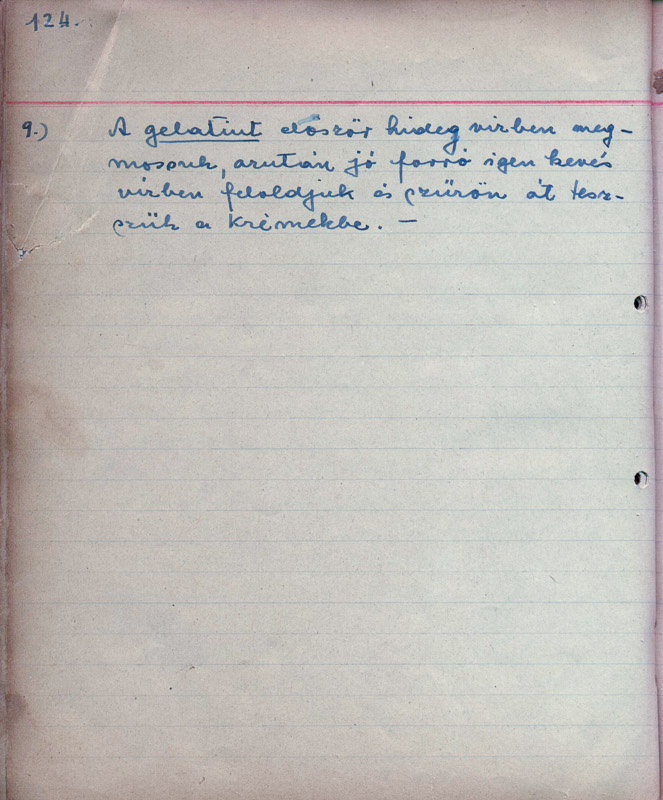 124.
9.) A gelatint először hideg vízben meg-
mossuk, azután jó forró igen kevés
vízben feloldjuk és szűrőn át tesz-
szük a krémekbe. —